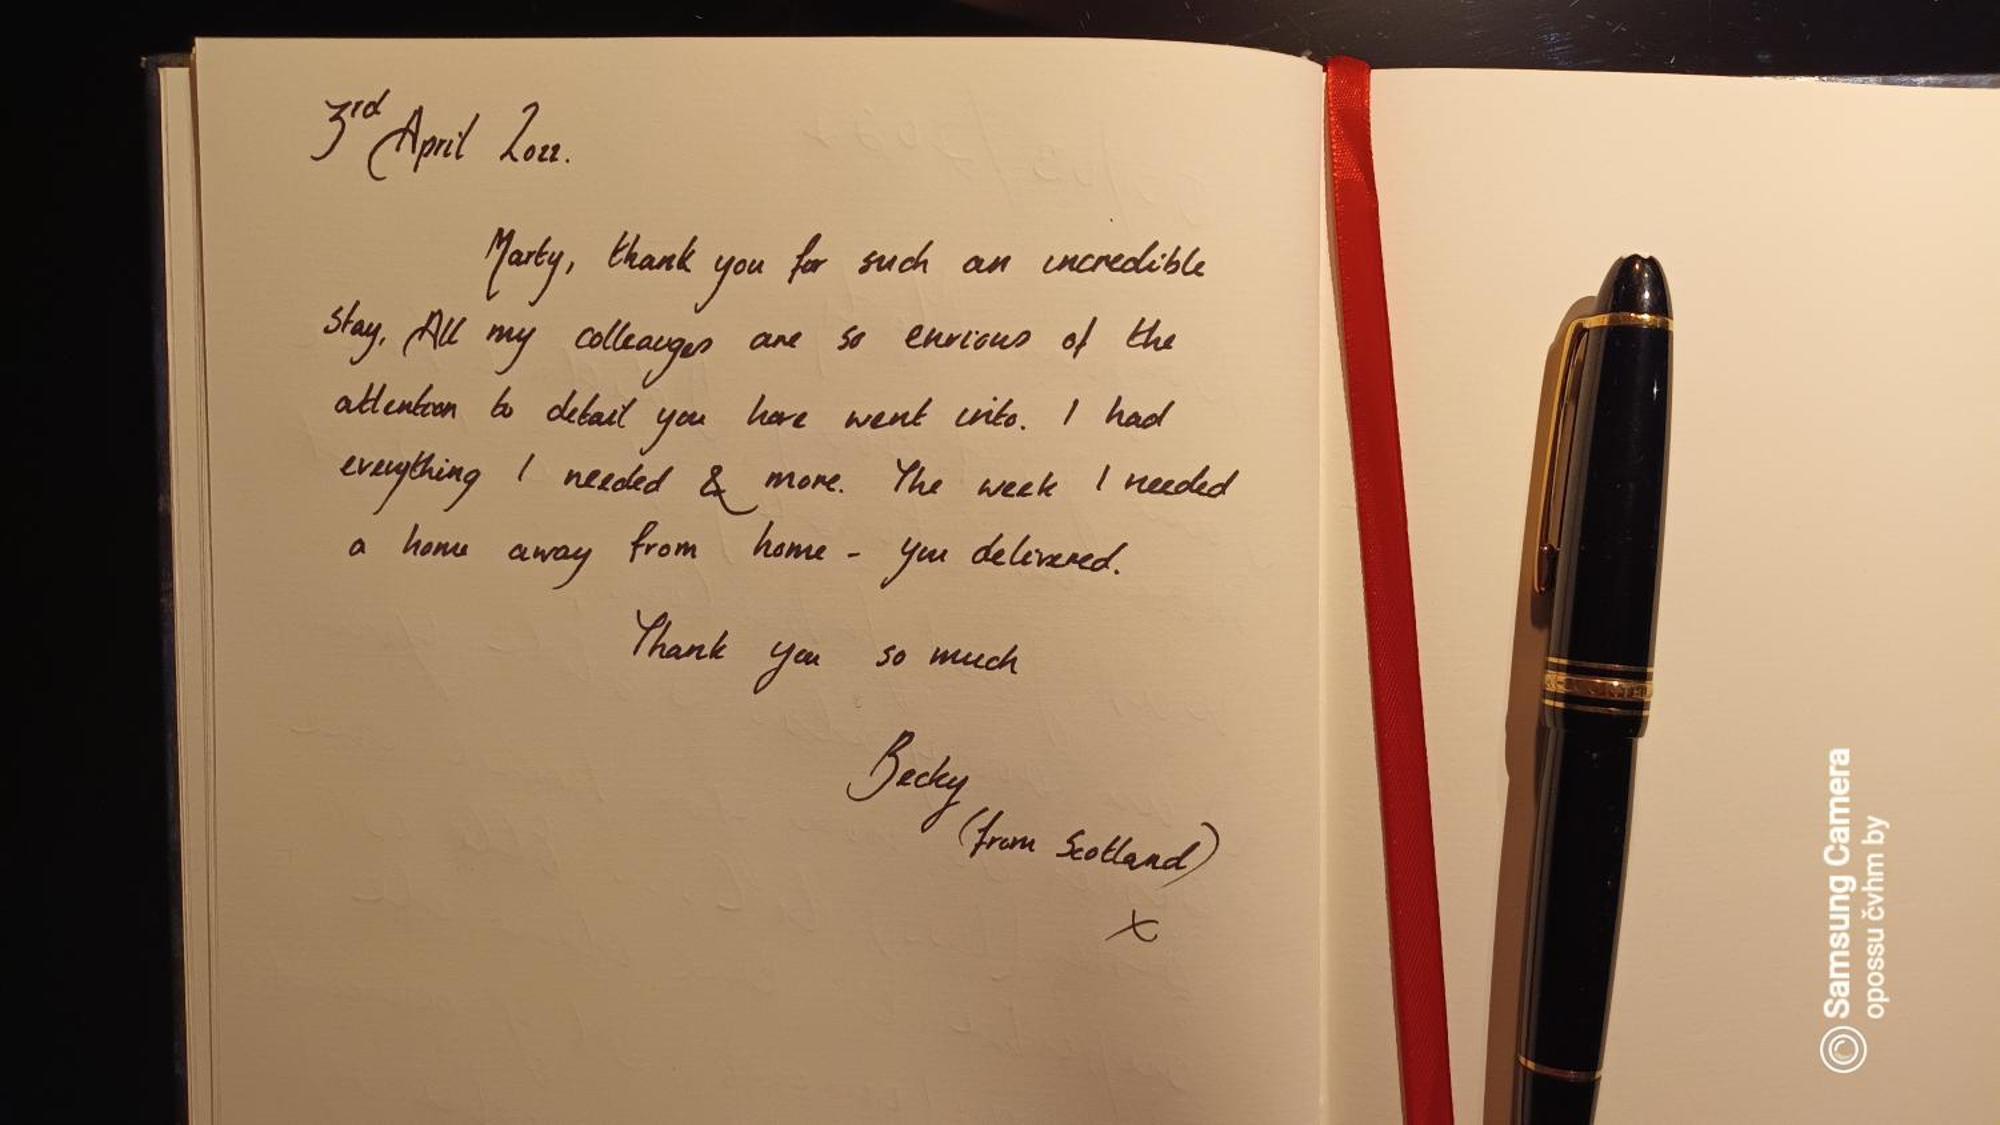 3rd April 2022.
Marty, thank you for such an incredible
stay. All my colleauges are so envious of the
attention to detail you have went into. I had
everything I needed & more. The week I needed
a home away from home - you delivered.
Thank you so much
Becky
(from Scotland)
x
Samsung Camera
opossu čvhm by